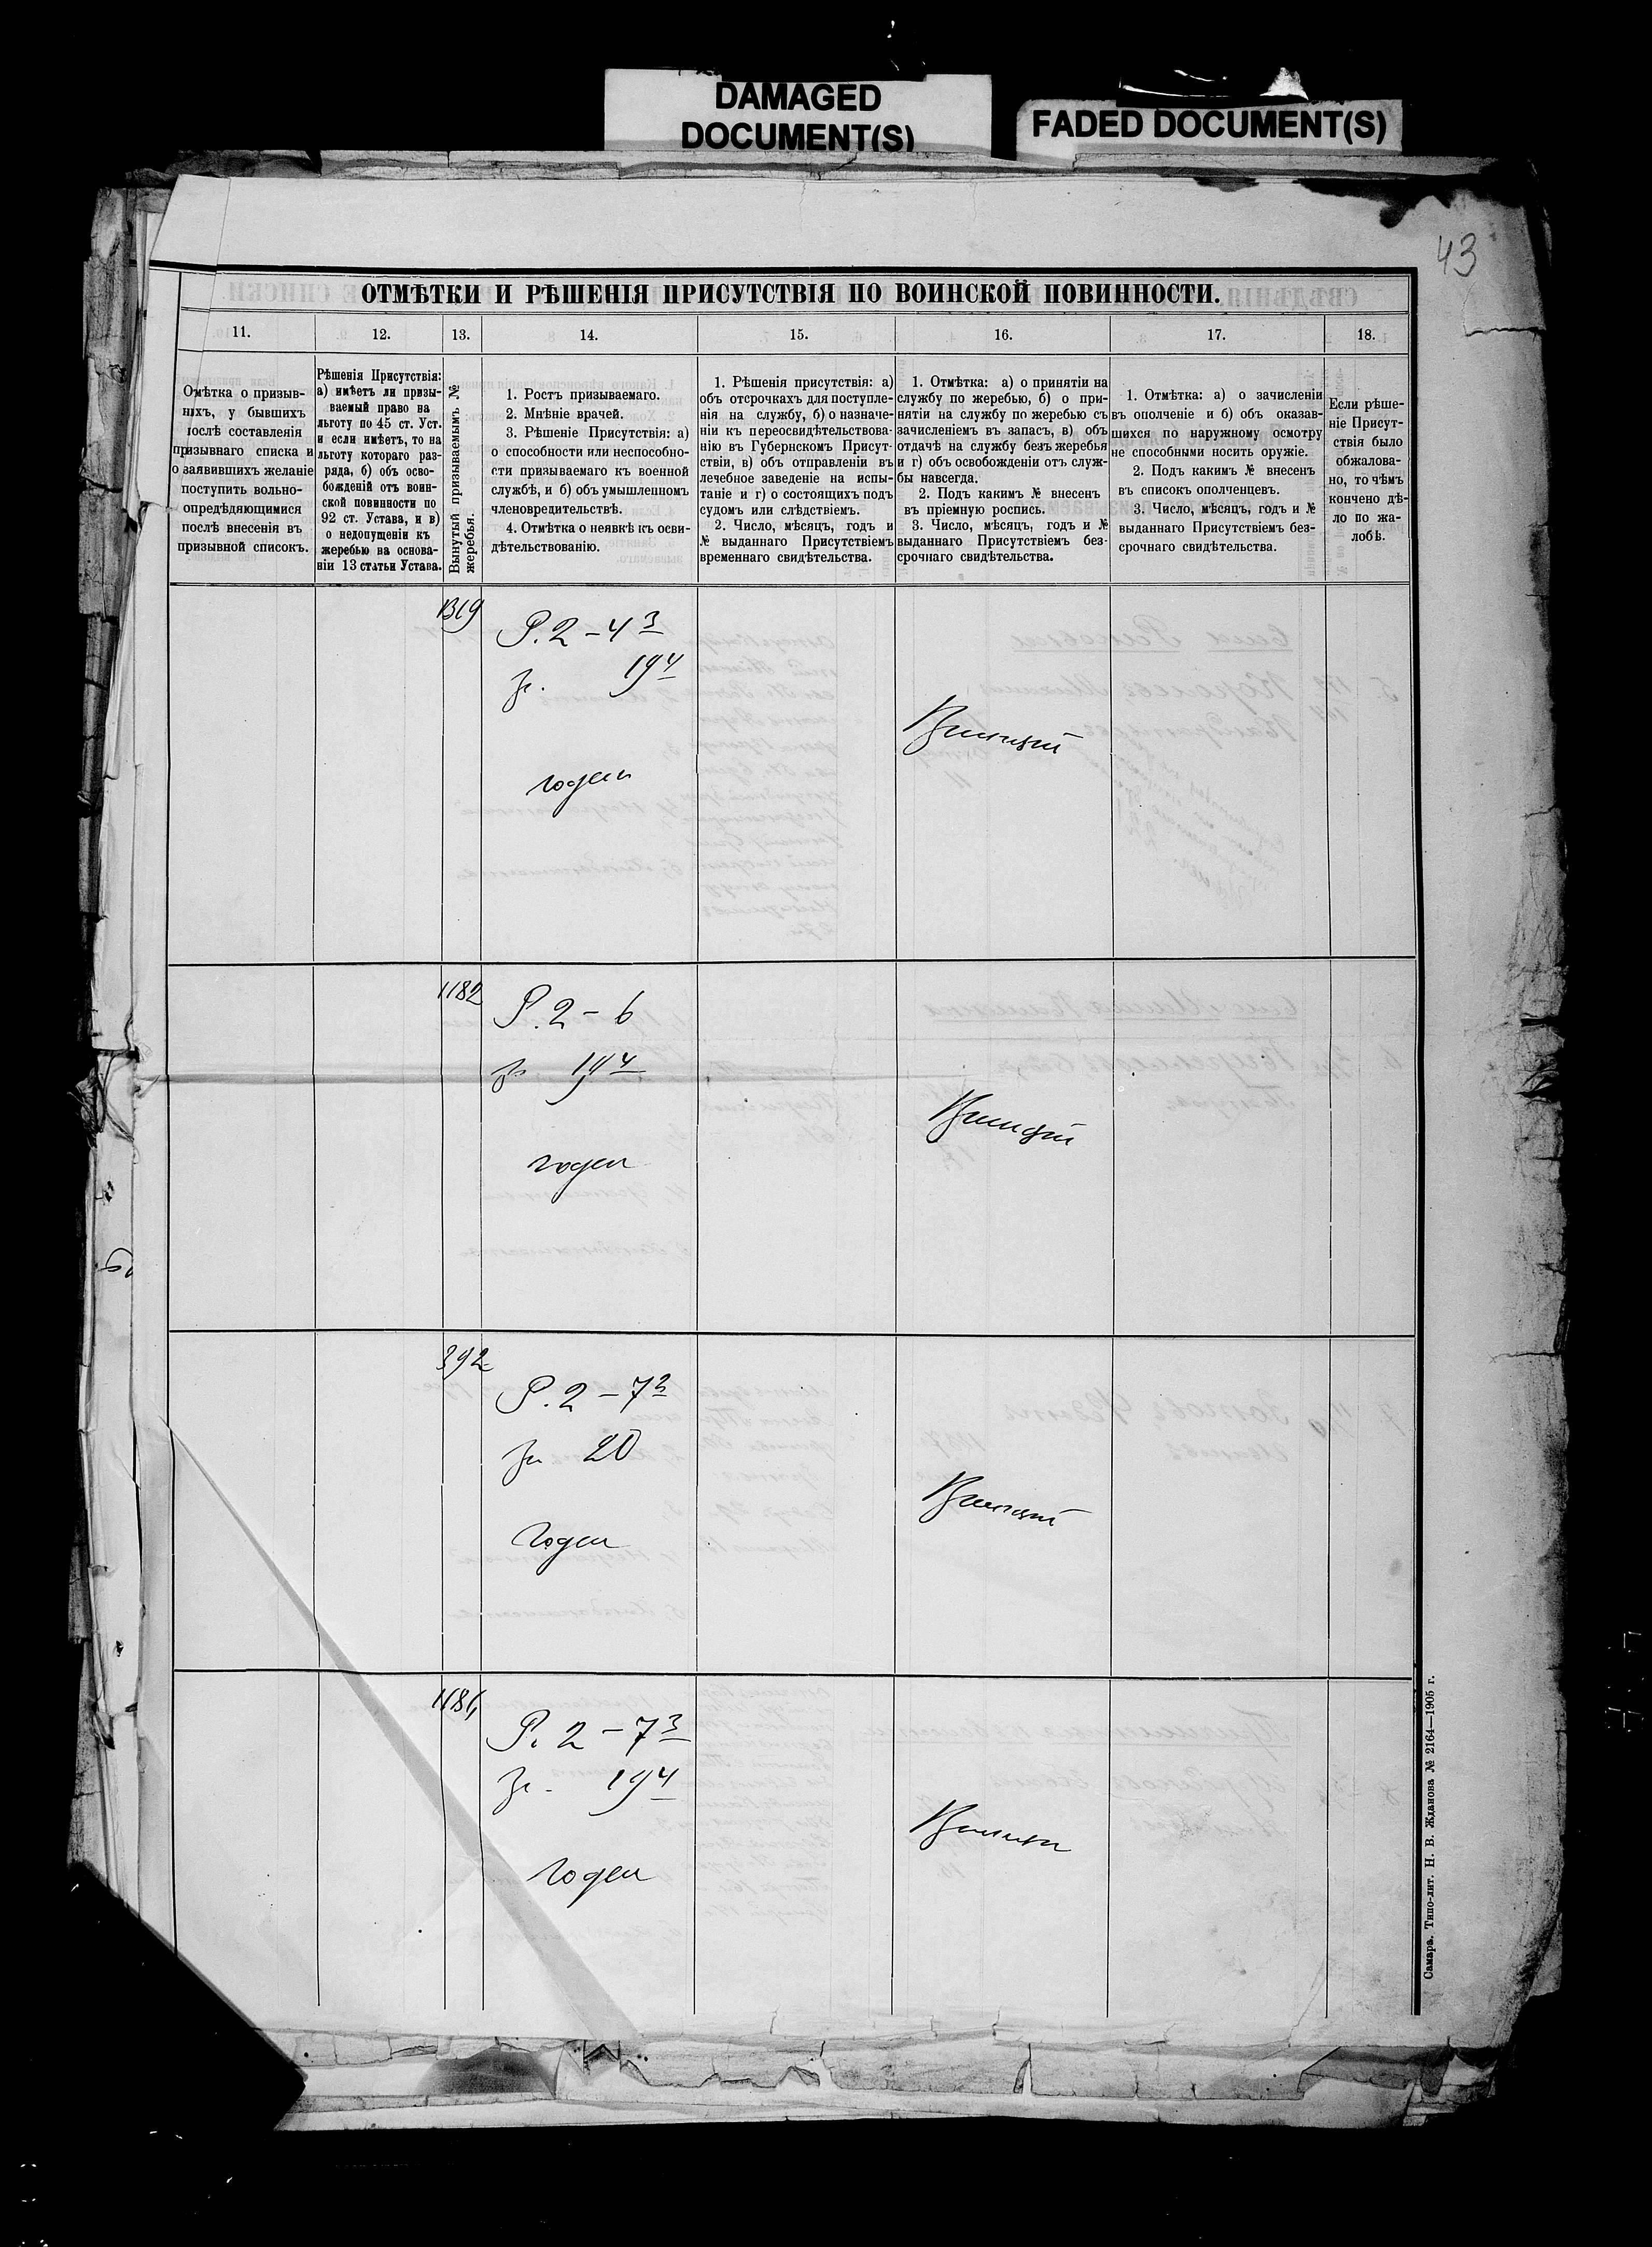 DAMAGED
DOCUMENT(S)
FADED DOCUMENT(S)
43
ОТМѢТКИ И РѢШЕНІЯ ПРИСУТСТВІЯ ПО ВОИНСКОЙ ПОВИННОСТИ.
11.
12.
13.
14.
15.
16.
17.
18.
Омѣтка о призыв-
ныхъ, у бывшихъ
послѣ составленія
призывнаго списка и
о заявившихъ желаніе
поступить вольно-
опредѣдяющимися
послѣ внесенія въ
призывной списокъ.
Рѣшенія Присутствія:
а) имѣетъ ли призы-
ваемый право на
льготу по 45 ст. Уст.
и если имѣетъ, то на
льготу котораго раз-
ряда, б) объ осво-
божденій отъ воин-
ской повинности по
92 ст. Устава, и в)
о недопущеніи къ
жеребью на основа-
ніи 13 статьи Устава.
Вынутый призываемымъ №
жеребья.
1. Ростъ призываемаго.
2. Мнѣніе врачей.
3. Рѣшеніе Присутствія: а)
о способности или неспособно-
сти призываемаго къ военной
службѣ, и б) объ умышленномъ
членовредительствѣ.
4. Отмѣтка о неявкѣ къ осви-
дѣтельствованію.
1. Рѣшенія присутствія: а)
объ отсрочкахъ для поступле-
нія на службу, б) о назначе-
ніи къ переосвидѣтельствова-
нію въ Губернскомъ Присут-
ствіи, в) объ отправленіи въ
лечебное заведеніе на испы-
таніе и г) о состоящихъ подъ
судомъ или слѣдствіемъ.
2. Число, мѣсяцъ, годъ и
№ выданнаго Присутствіемъ
временнаго свидѣтельства.
1. Отмѣтка: а) о принятіи на
службу по жеребью, б) о при-
нятіи на службу по жеребью съ
зачисленіемъ въ запасъ, в) объ
отдачѣ на службу безъ жеребья
и г) объ освобожденіи отъ служ-
бы навсегда.
2. Подъ какимъ № внесенъ
въ пріемную роспись.
3. Число, мѣсяцъ, годъ и №
выданнаго Присутствіемъ без-
срочнаго свидѣтельства.
1. Отмѣтка: а) о зачисленіи
въ ополченіе и б) объ оказав-
шихся по наружному осмотру
не способными носить оружіе.
2. Подъ какимъ № внесенъ
въ списокъ ополченцевъ.
3. Число, мѣсяцъ, годъ и №
выданнаго Присутствіемъ без-
срочнаго свидѣтельства.
Если рѣше-
ніе Присут-
ствія было
обжалова-
но, то чѣмъ
кончено дѣ-
ло по жа-
лобѣ.
Р. 2 – 4 3
19 4
годен
1182
Р. 2 – 6
19 4
годен
392
Р. 2 – 7 3
20
Годен
Р. 2 – 7 3
19 4
Годен
Самара. Типо-лит. Н. В. Жданова № 2164—1905 г.